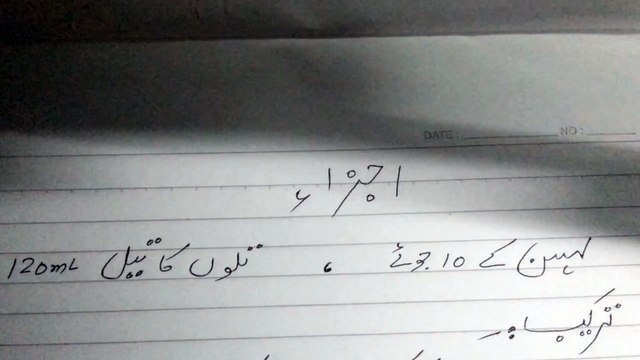 DATE: NO:
اجزاء
لہسن کے 10 جوئے ، تلوں کا تیل 120mL
ترکیب :-